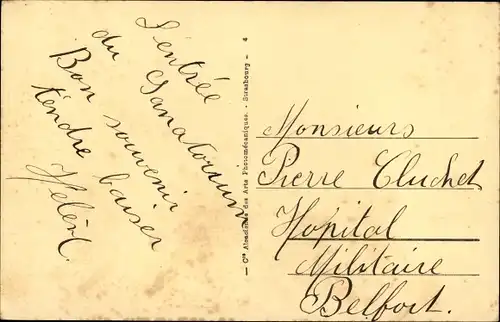 L'entrée
du Sanatorium
Bon souvenir
tendre baiser
Helène
— Cie Alsacienne des Arts Photomécaniques. - Strasbourg — 4
Monsieurs
Pierre Cluchet
Hopital
Militaire
Belfort.